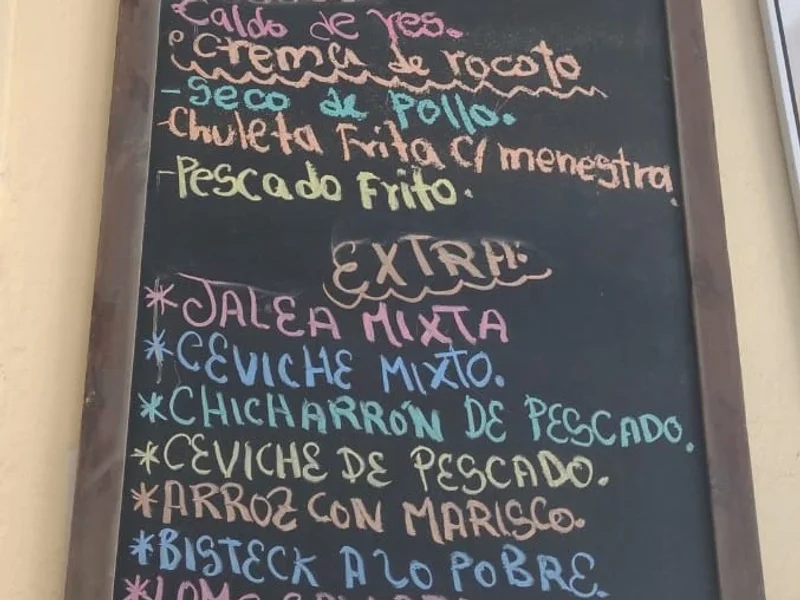 Caldo de res.
Crema de rocoto
-Seco de Pollo.
-Chuleta Frita c/ menestra.
-Pescado Frito.
EXTRA:
*JALEA MIXTA
*CEVICHE MIXTO.
*CHICHARRÓN DE PESCADO.
*CEVICHE DE PESCADO.
*ARROZ CON MARISCO.
*BISTECK A LO POBRE.
*LOMO